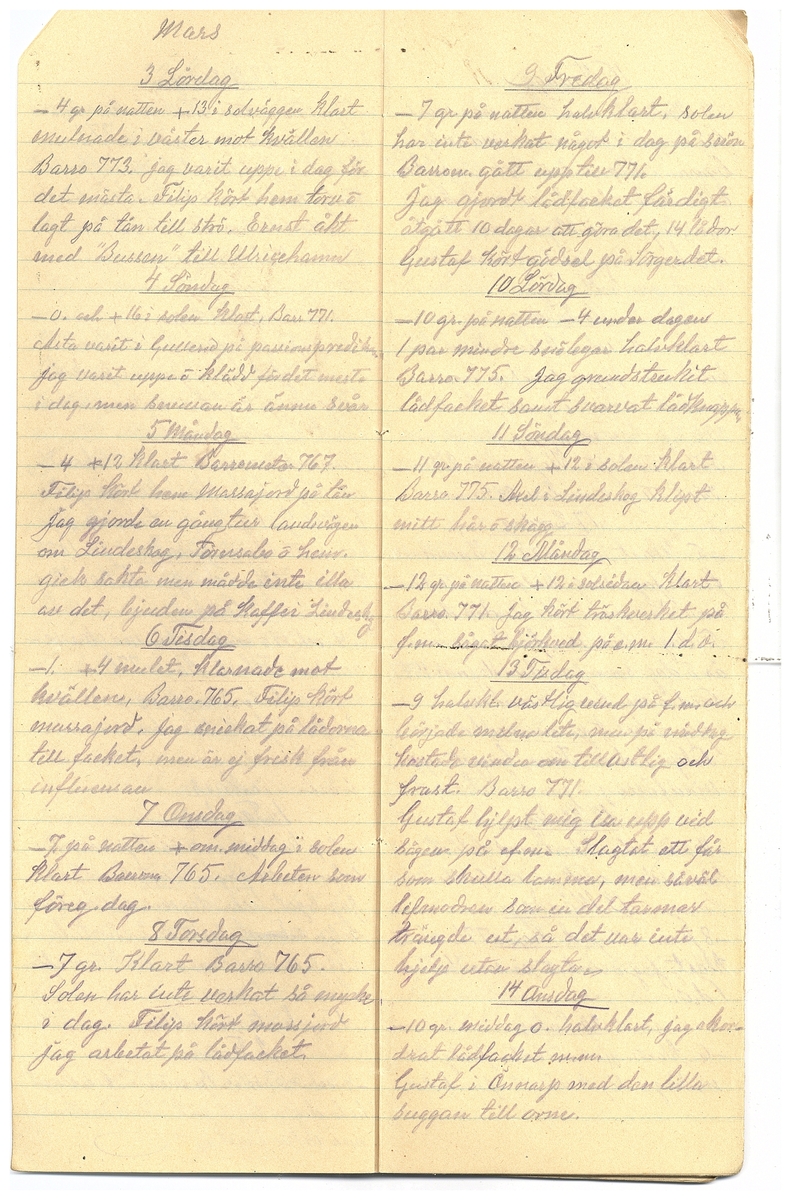 Mars
3 Lördag
– 4 gr på natten + 13 i solväggen Klart
mulnade i väster mot kvällen
Barro 773. jag varit uppe i dag för
det mästa. Filip kört hem torv o
lagt på tån till strö. Ernst åkt
med "Bussen" till Ulricehamn
4 Söndag
– 0. och + 16 i solen Klart, Barr 771.
varit i på passionspredik
jag varit uppe o klädd för det mesta
i dag, men är ännu svår
5 Måndag
– 4 + 12 Klart Barrometer 767.
Filip kört hem Massajord på tån
Jag gjorde en gångtur landsvägen
om Lindeskog, o hem.
gick sakta men mådde inte illa
av det, bjuden på Kaffe i Lindeskog
6 Tisdag
– 1. + 4 mulet, Klarnade mot
kvällen, Barro. 765. Filip Kört
massajord. jag snickat på lådorna
till facket, men är ej frisk från
influensan
7 Onsdag
– 7 på natten + om middag i solen
Klart Barrom 765. Arbeten som
föreg. dag.
8 Torsdag
– 7 gr. Klart Barro 765.
Solen har inte verkat så mycke
i dag. Filip Kört mossjord
jag arbetat på lådfacket.
9 Fredag
– 7 gr på natten halvklart, solen
har inte verkat något i dag på snön
Barrom. gått upp till 771.
Jag gjordt lådfacket färdigt
åtgått 10 dagar att göra det, 14 lådor
Gustaf Kört gödsel på
10 Lördag
– 10 gr. på natten – 4 under dagen
1 par mindre snöbyar halvklart
Barro. 775. Jag grundstrukit
lådfacket samt svarvat lådknappar
11 Söndag
– 11 gr på natten + 12 i solen Klart
Barro 775. i Lindeskog klipt
mitt hår o skägg
12 Måndag
– 12 gr på natten + 12 i solsidan Klart
Barro. 771. Jag kört tröskverket på
f.m. sågat björkved på e.m. 1. d. o.
13 Tisdag
– 9 halvkl. västlig vind på f.m. och
började mulna lite, men på middag
kastade vinden om till ostlig och
frost. Barro 771.
Gustaf hjelpt mig upp ved
sågen på ef.m. Slagtat ett får
som skulle lamma, men såväl
lifmodren som en del tarmar
trängde ut, så det var inte
hjelp utan slagta
14 Onsdag
– 10 gr. middag 0. halvklart, jag åkor-
drat lådfacket m.m.
Gustaf i Önnarp med den lilla
suggan till orne.